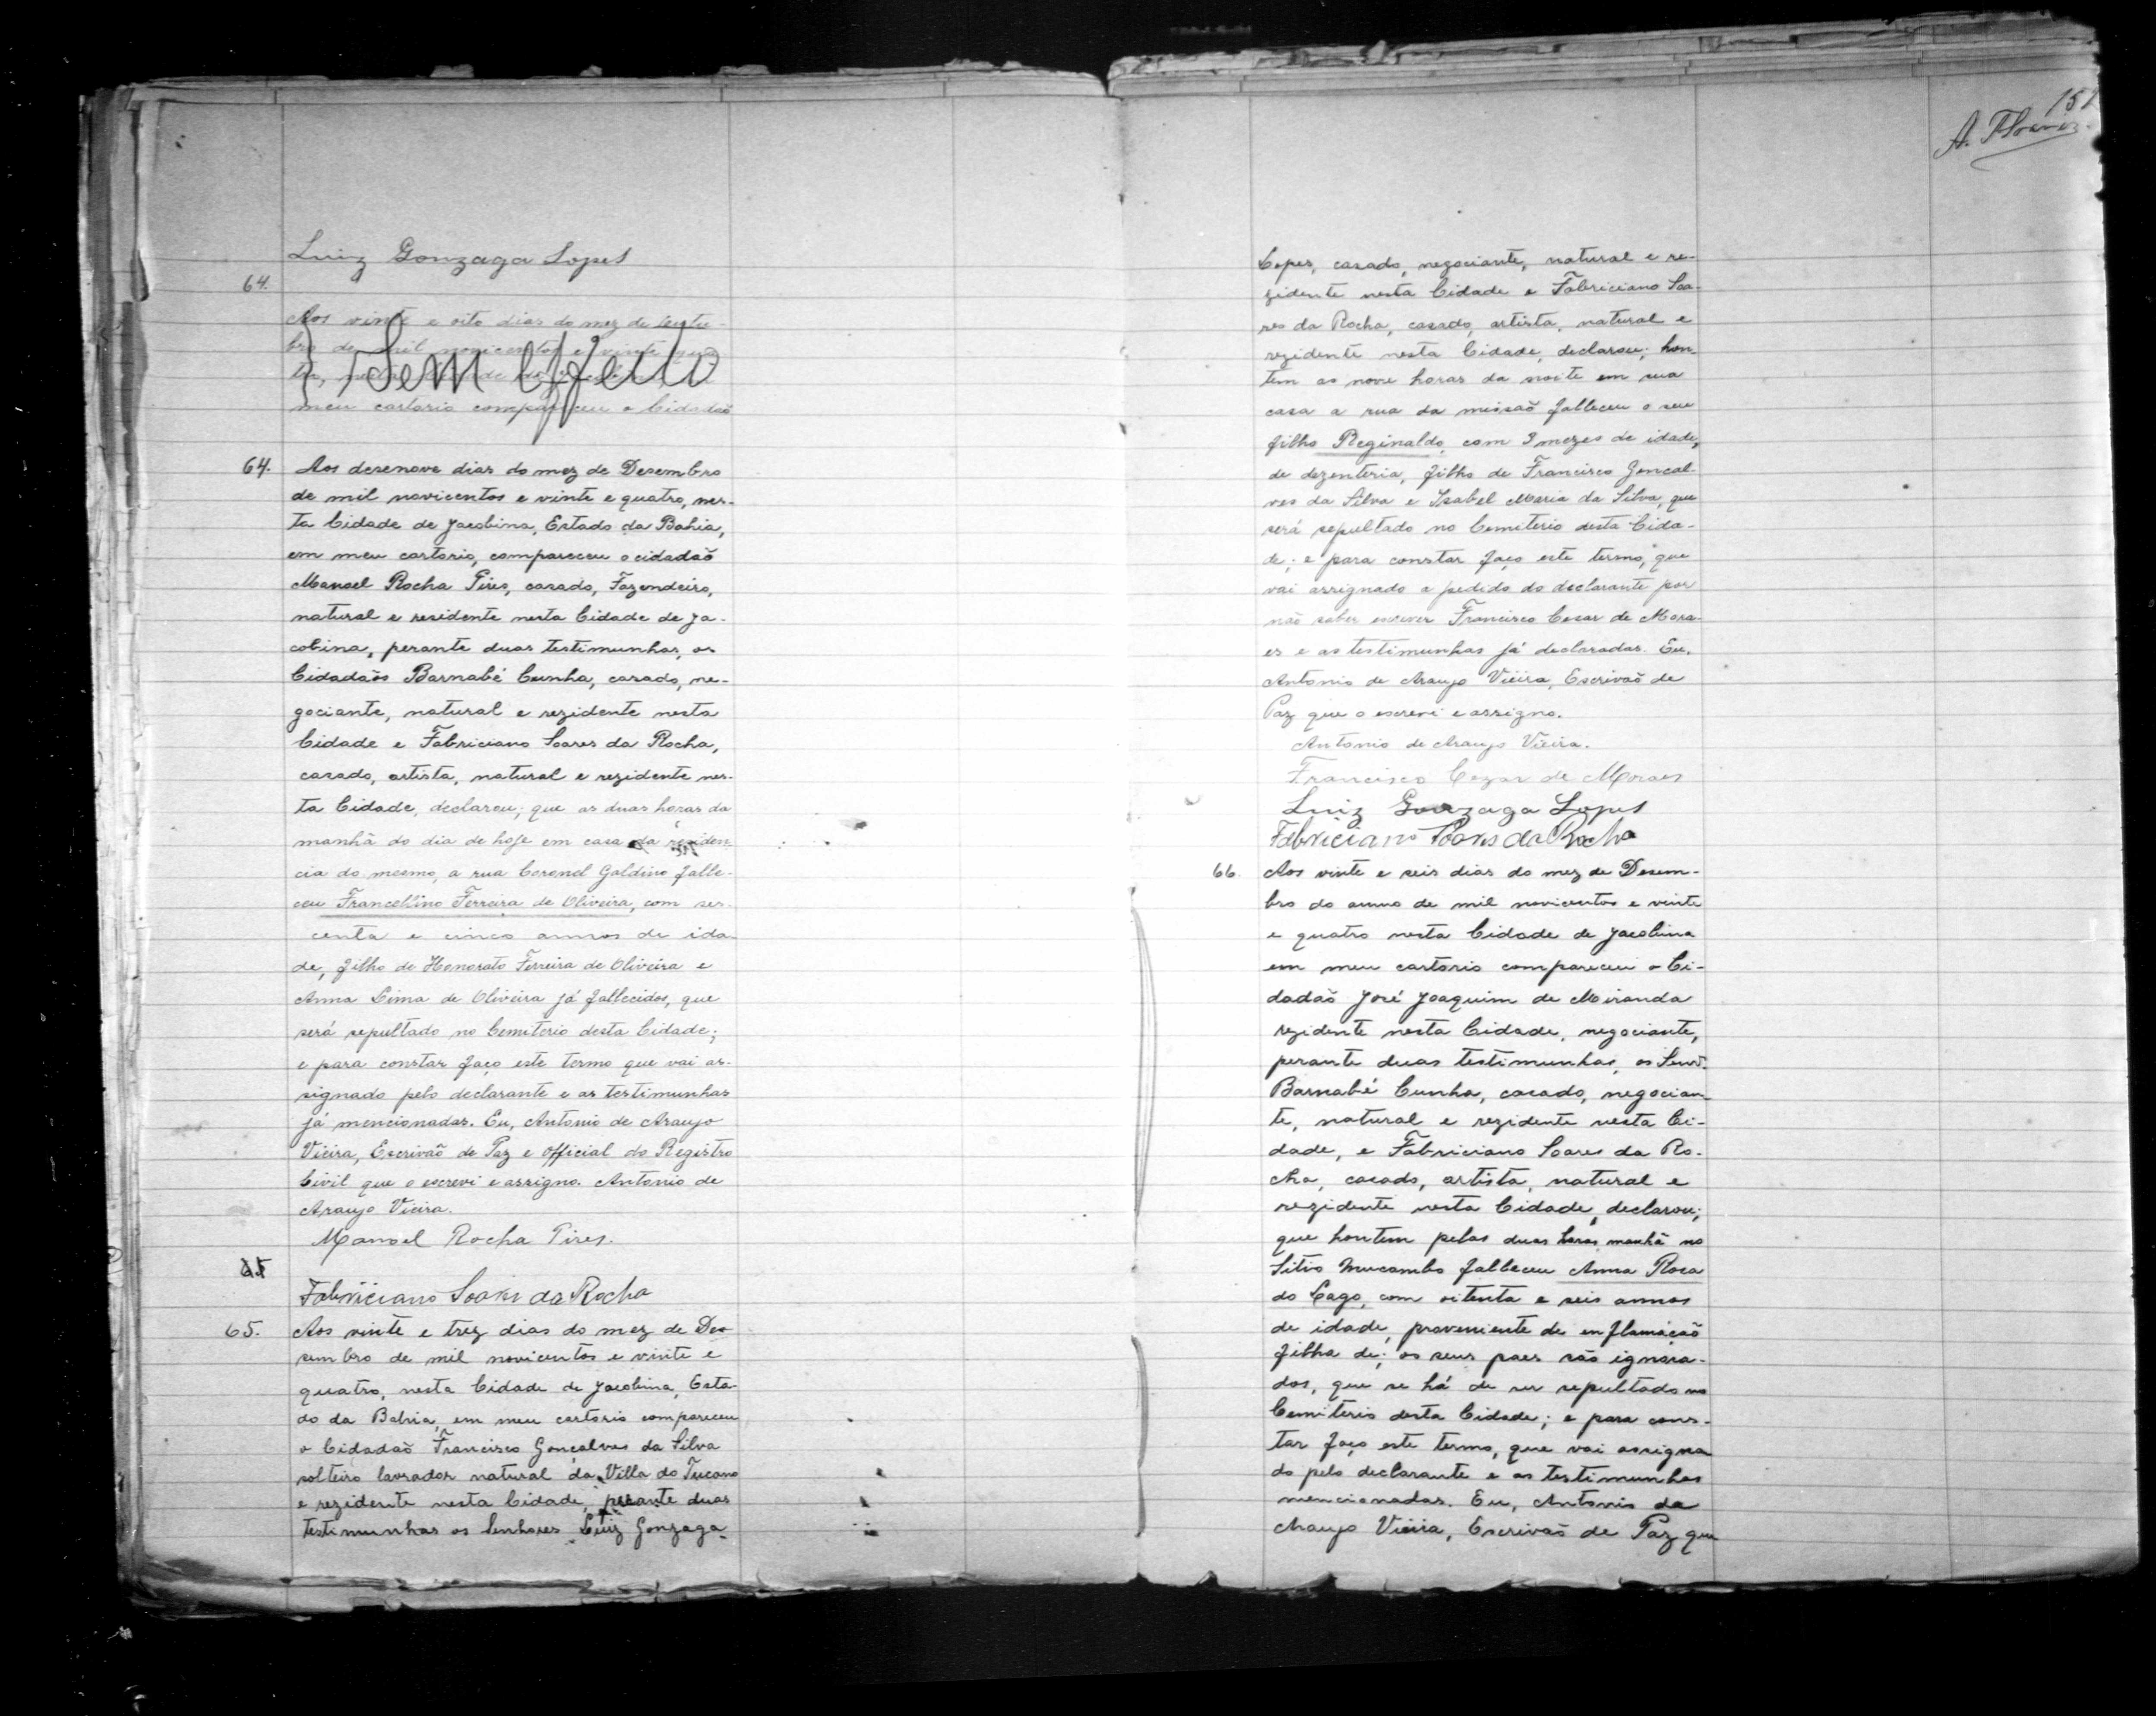 Luiz Gonzaga Lopes
64.
Aos vinte e oito dias do mez de
bro de mil novicentos e vinte
Sem effeito
meu cartorio compareceu o Cidadaõ
64. Aos desenove dias do mez de Desembro
de mil novicentos e vinte e quatro, nes-
ta Cidade de Jacobina, Estado da Bahia,
em meu cartorio, compareceu o cidadaõ
Manoel Rocha Pires, casado, Fazendeiro,
natural e residente nesta Cidade de Ja-
cobina, perante duas testimunhas, os
Cidadaõs Barnabé Cunha, casado, ne-
gociante, natural e rezidente nesta
Cidade e Fabriciano Soares da Rocha,
casado, artista, natural e rezidente nes-
ta Cidade, declarou; que as duas horas da
manhã do dia de hoje em casa da residen-
cia do mesmo, a rua Coronel Galdino falle-
ceu Francellino Ferreira de Oliveira, com ses-
centa e cinco annos de ida-
de, filho de Honorato Ferreira de Oliveira e
Anna Lima de Oliveira já fallecidos, que
será sepultado no Cemiterio desta Cidade;
e para constar faço este termo que vai as-
signado pelo declarante e as testimunhas
já mencionadas. Eu, Antonio de Araujo
Vieira, Escrivaõ de Paz e official do Registro
Civil que o escrevi e assigno. Antonio de
Araujo Vieira.
Manoel Rocha Pires.
Fabriciano Soares da Rocha
65. Aos vinte e trez dias do mez de De-
sembro de mil novicentos e vinte e
quatro, nesta Cidade de Jacobina, Esta-
do da Bahia, em meu cartorio compareceu
o Cidadaõ Francisco Gonçalves da Silva
solteiro lavrador natural da Villa do Tucano
e rezidente nesta Cidade, perante duas
testimunhas os Senhores Luiz Gonzaga
151
A.
Lopes, casado, negociante, natural e re-
zidente nesta Cidade e Fabriciano Soa-
res da Rocha, casado, artista, natural e
rezidente nesta Cidade, declarou; hon-
tem as nove horas da noite em sua
casa a rua da missaõ falleceu o seu
filho Reginaldo, com 3 mezes de idade,
de dezenteria, filho de Francisco Goncal-
ves da Silva e Izabel Maria da Silva, que
será sepultado no Cemiterio desta Cida-
de; e para constar faço este termo, que
vai assignado a pedido do declarante por
não saber escrever Francisco Cesar de Mora-
es e as testimunhas já declaradas. Eu,
Antonio de Araujo Vieira, Escrivaõ de
Paz que o escrevi e assigno.
Antonio de Araujo Vieira.
Francisco Cezar de Moraes
Luiz Gonzaga Lopes
Fabriciano Soares da Rocha
66. Aos vinte e seis dias do mez de Desem-
bro do anno de mil novicentos e vinte
e quatro nesta Cidade de Jacobina
em meu cartorio compareceu o Ci-
dadaõ José Joaquim de Miranda
rezidente nesta Cidade, negociante,
perante duas testimunhas, os
Barnabé Cunha, casado, negocian-
te, natural e rezidente nesta Ci-
dade, e Fabriciano Soares da Ro-
cha, casado, artista, natural e
rezidente nesta Cidade, declarou;
que hontem pelas duas horas manhã no
Sitio Mucambo falleceu Anna Rosa
do Lago, com oitenta e seis annos
de idade, proveniente de enflamação
filha de; os seus paes são ignora-
dos, que se há de ser sepultado no
Cemiterio desta Cidade; e para cons-
tar faço este termo, que vai assigna
do pelo declarante e as testimunhas
mencionadas. Eu, Antonio de
Araujo Vieira, Escrivaõ de Paz que